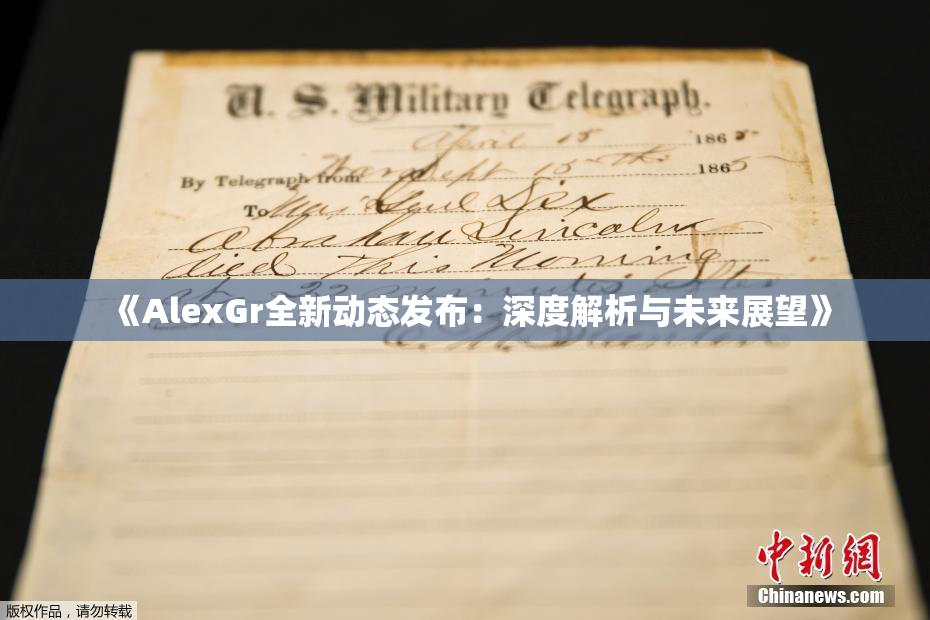 U. S. Military Telegraph.
April 15 1865
By Telegraph from War Dept 15th 1865
To Maj Genl Dix
Abraham Lincoln
died This Morning
at 22 minutes after
《AlexGr全新动态发布：深度解析与未来展望》
中新网
Chinanews.com
版权作品，请勿转载